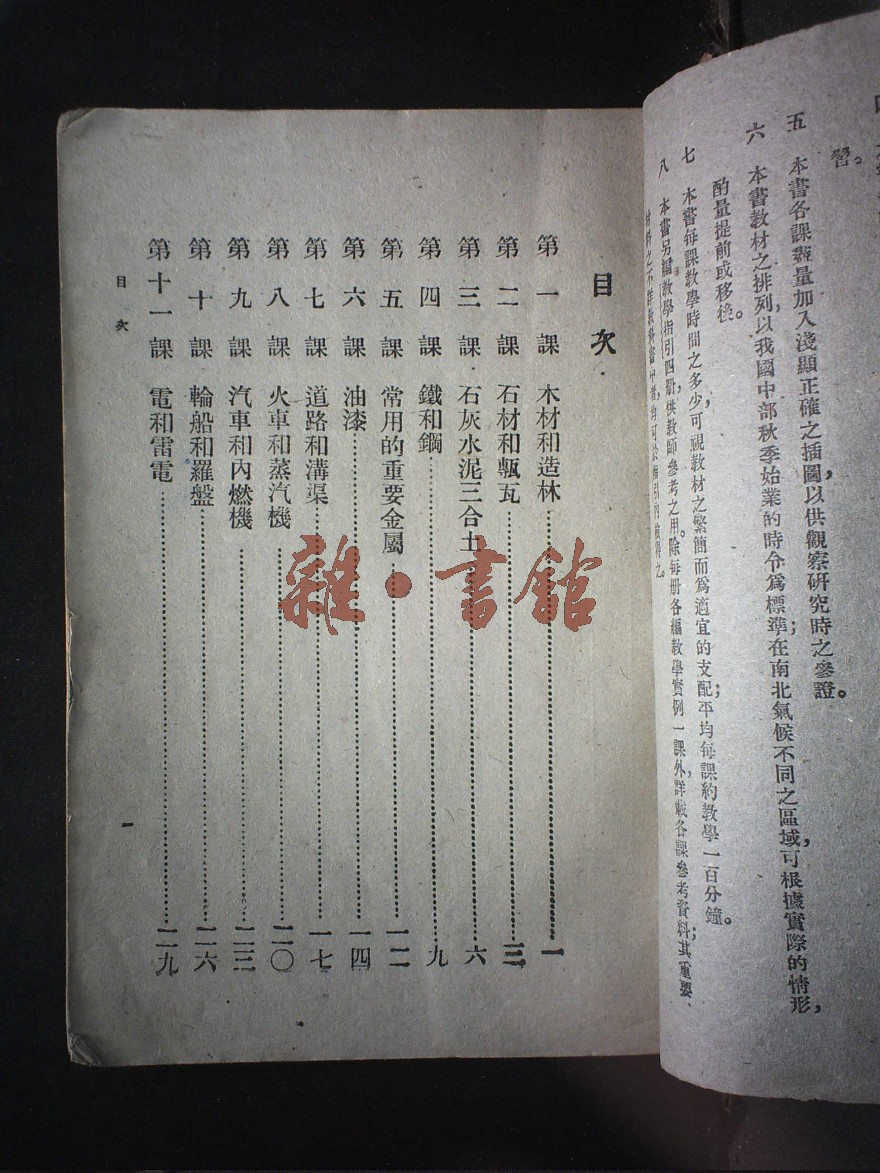 習。
五 本書各課盡量加入淺顯正確之插圖，以供觀察研究時之參證。
六 本書教材之排列，以我國中部秋季始業的時令爲標準；在南北氣候不同之區域，可根據實際的情形，
酌量提前或移後。
七 本書每課教學時間之多少，可視教材之繁簡而爲適宜的支配；平均每課約教學一百分鐘。
八 本書另編教學指引四册，供教師參考之用。除每册各編教學實例一課外，詳載各課參考資料；其重要
目次
第一課 木材和造林 一
第二課 石材和甎瓦 三
第三課 石灰水泥三合土 六
第四課 鐵和鋼 九
第五課 常用的重要金屬 一二
第六課 油漆 一四
第七課 道路和溝渠 一七
第八課 火車和蒸汽機 二〇
第九課 汽車和內燃機 二三
第十課 輪船和羅盤 二六
第十一課 電和雷電 二九
目次
一
雜·書館